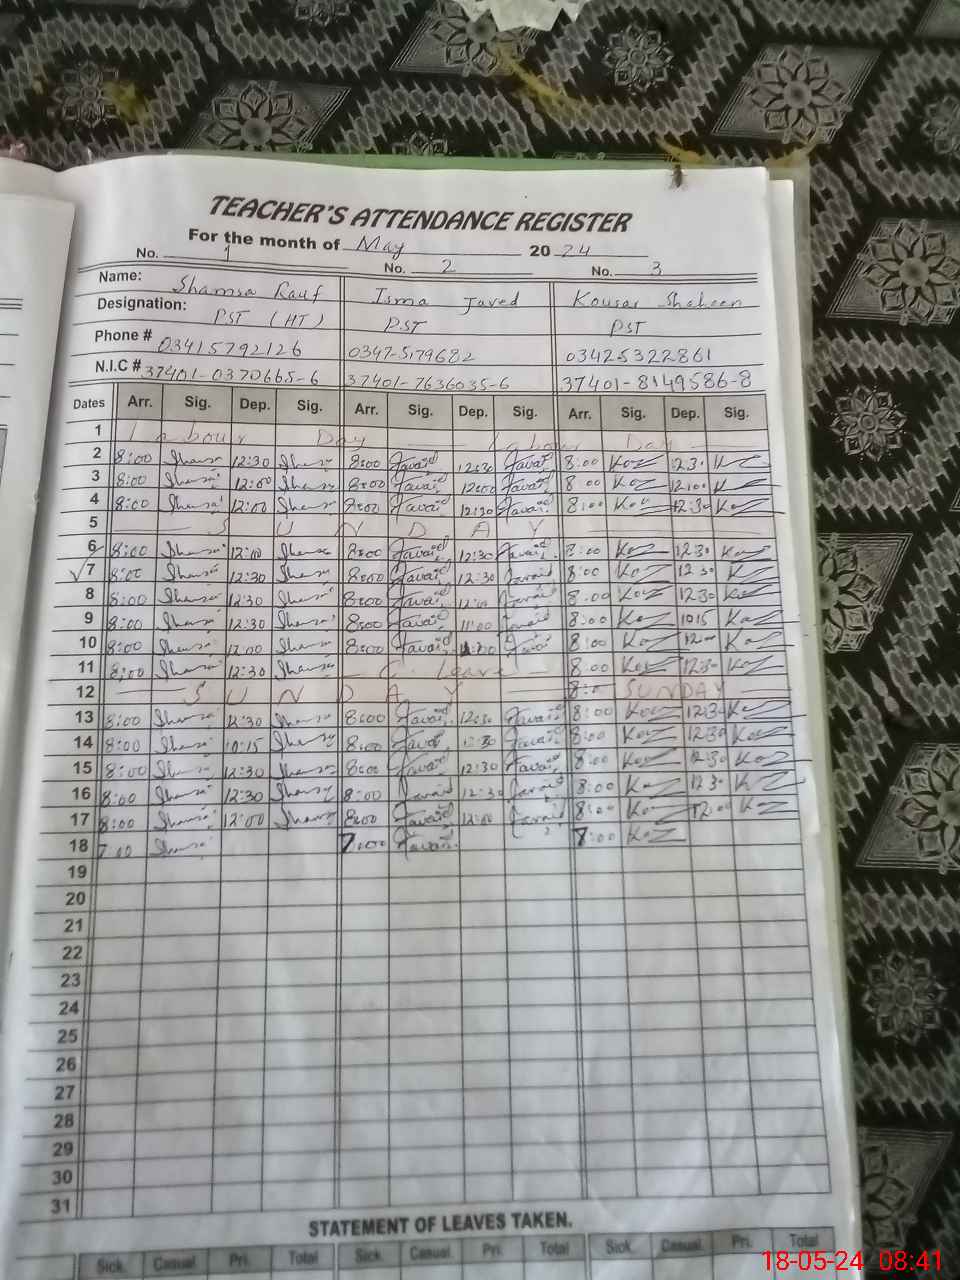 TEACHER'S ATTENDANCE REGISTER
For the month of May 2024
No. 1 No. 2 No. 3
Name: Shamsa Rauf Isma Javed Kousar Shaheen
Designation: PST (HT) PST PST
Phone # 03415792126 0347-5179682 03425322861
N.I.C # 37401-0370665-6 37401-7636035-6 37401-8149586-8
Dates Arr. Sig. Dep. Sig. Arr. Sig. Dep. Sig. Arr. Sig. Dep. Sig.
1 Labour Day Labour Day
2 8:00 Shamsa 12:30 Shamsa 8:00 Javaid 12:30 Javaid 8:00 Koz 12:30 Koz
3 8:00 Shamsa 12:00 Shamsa 8:00 Javaid 12:00 Javaid 8:00 Koz 12:00 Koz
4 8:00 Shamsa 12:00 Shamsa 8:00 Javaid 12:30 Javaid 8:00 Koz 12:30 Koz
5 SUNDAY
6 8:00 Shamsa 12:00 Shamsa 8:00 Javaid 12:30 Javaid 8:00 Koz 12:30 Koz
7 8:00 Shamsa 12:30 Shamsa 8:00 Javaid 12:30 Javaid 8:00 Koz 12:30 Koz
8 8:00 Shamsa 12:30 Shamsa 8:00 Javaid 12:00 Javaid 8:00 Koz 12:30 Koz
9 8:00 Shamsa 12:30 Shamsa 8:00 Javaid 11:00 Javaid 8:00 Koz 10:15 Koz
10 8:00 Shamsa 12:00 Shamsa 8:00 Javaid Javaid 8:00 Koz 12:00 Koz
11 8:00 Shamsa 12:30 Shamsa C. Leave 8:00 Koz 12:30 Koz
12 SUNDAY SUNDAY
13 8:00 Shamsa 12:30 Shamsa 8:00 Javaid 12:30 Javaid 8:00 Koz 12:30 Koz
14 8:00 Shamsa 10:15 Shamsa 8:00 Javaid Javaid 8:00 Koz 12:30 Koz
15 8:00 Shamsa 12:30 Shamsa 8:00 Javaid 12:30 Javaid 8:00 Koz 12:30 Koz
16 8:00 Shamsa 12:30 Shamsa 8:00 Javaid 12:30 Javaid 8:00 Koz 12:30 Koz
17 8:00 Shamsa 12:00 Shamsa 8:00 Javaid 12:00 Javaid 8:00 Koz 12:00 Koz
18 7:00 Shamsa 7:00 Javaid 7:00 Koz
19
20
21
22
23
24
25
26
27
28
29
30
31
STATEMENT OF LEAVES TAKEN.
Sick. Casual. Pri. Total Sick. Casual. Pri. Total Sick. Casual. Pri. Total
18-05-24 08:41